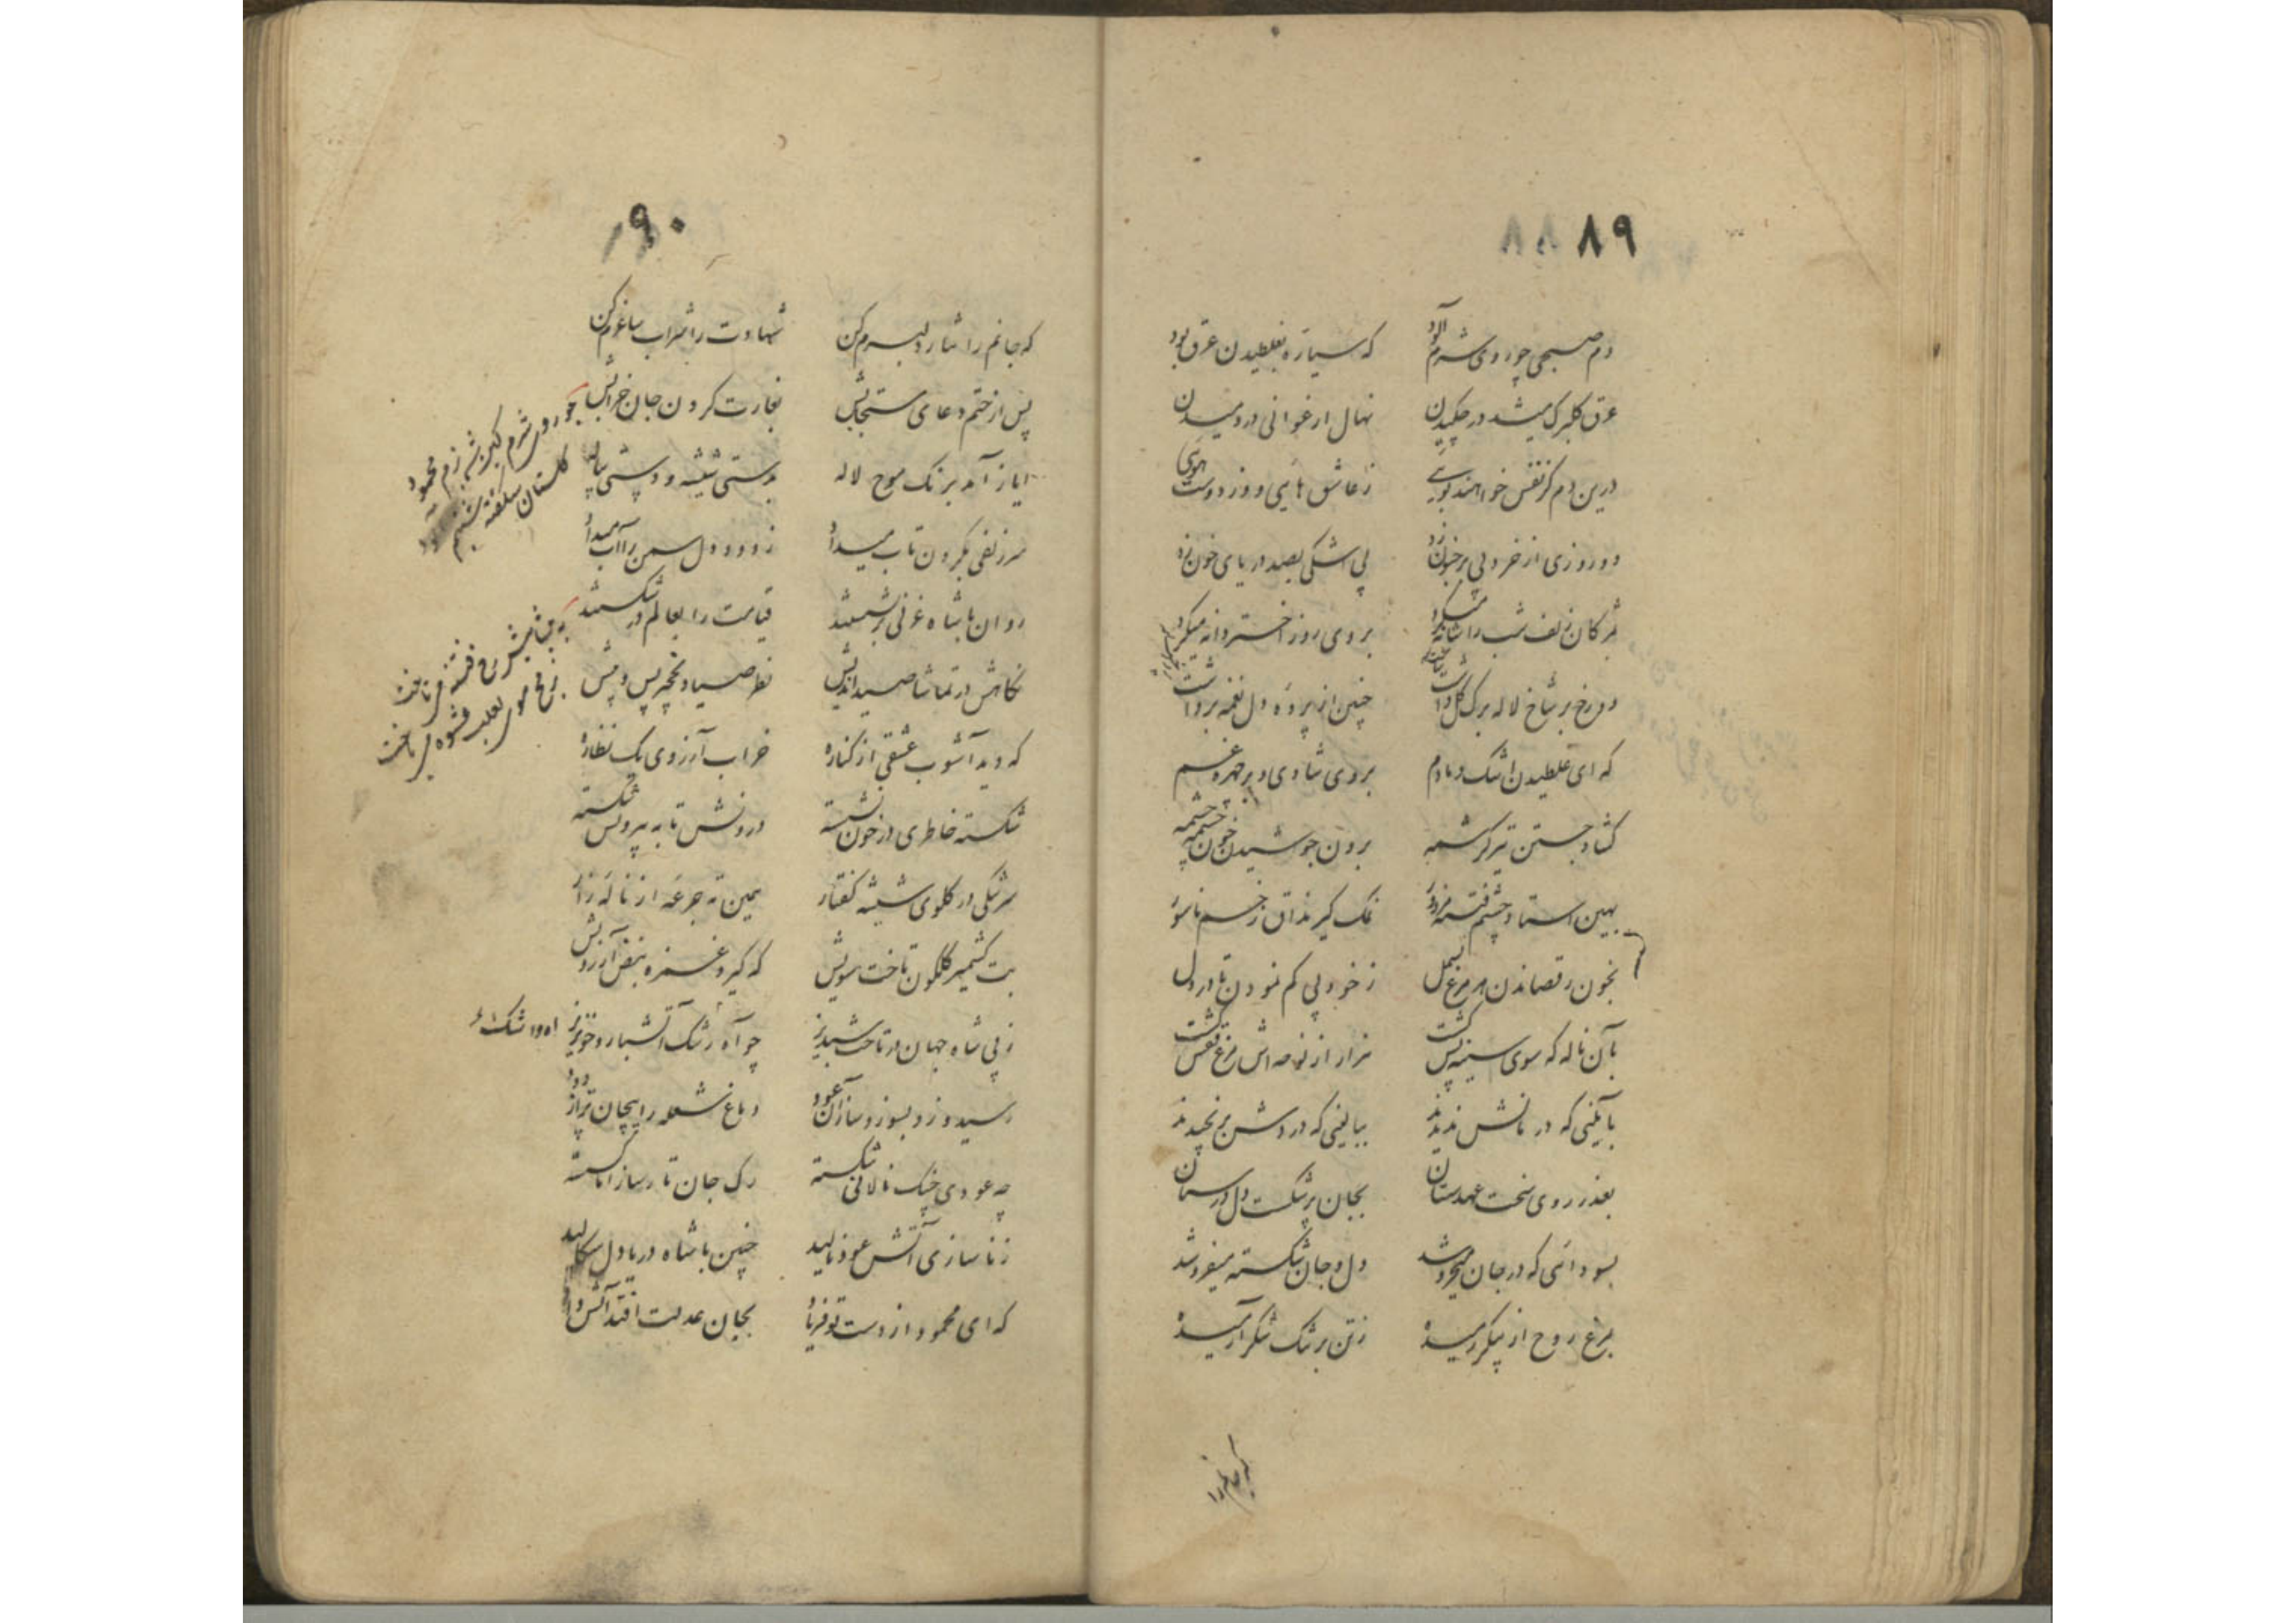 ۸۹ ۸۸
دم صبحی چو روی شرم آلود که سیاره بغلطیدن عرق بود
عرق گلبرگ میشد در چکیدن نهال ارغوانی در دمیدن
درین دم کز نفس خواهند بویی ز عاشق هایی و وز دوست هویی
دو روزی از خرد پی بر جنون زد پی اشکی بصد دریای خون زد
مژگان زلف شب را شانه میکرد بروی روز اختر دانه میکرد
دو رخ بر شاخ لاله برگ گل داشت چنین از پرده دل نغمه برداشت
که ای غلطیدن اشک دمادم بروی شادی و بر چهره غم
گشاد جستن تیر کرشمه برون جوشیدن خون چشمه چشمه
بهین استاد چشم فتنه مزدور نمک گیر مذاق زخم ناسور
بخون رقصاندن هر مرغ بسمل ز خود پی کم نمودن تا در دل
بآن ناله که سوی سینه پس گشت هزار از نوحه اش مرغ قفس گشت
بآیینی که درمانش ندیدند ببالینی که دردش برنچیدند
بعذر روی سخت عهد سستان بجان پر شکست دل درستان
بسودائی که در جان میخروشد دل و جان شکسته میفروشد
بمرغ روح از پیکر رمیده ز تن بر تنگ شکر آرمیده
که جانم را
۹۰
که جانم را نثار دلبرم کن شهادت را شراب ساغرم کن
پس از ختم دعای مستجابش بغارت کردن جان خرابش
چو روی شرم گلبرگ بزم محمود
گلستان شگفته شبنم
ایاز آمد برنگ موج لاله بدستی شیشه و دستی پیاله
سر زلفی بگردن تاب میداد ز دود دل سمن را آب میداد
روان با شاه غزنی برنشستند قیامت را بعالم در شکستند
نگاهش در تماشا صید اندیش نظر صیاد و نخچیر پس و پیش
که دید آشوب عشقی از کناره خراب آرزوی یک نظاره
شکسته خاطری در خون نشسته درونش تا به بیرونش شکسته
سرشکی در گلوی شیشه گفتار همین ته جرعه از ناله زار
بت کشمیر گلگون تاخت سویش که گیرد غمزه نبض آرزویش
ز پی شاه جهان در تاخت شبدیز چو آه و اشک آتشبار و خونریز
رسید و زد بسوز و ساز آن عود دماغ شعله را پیچان تر از دود
چه عودی چنگ نالانی شکسته رگ جان تار ساز اما گسسته
ز ناسازی آتش عود نالید چنین با شاه دریادل سگالید
که ای محمود از دست تو فریاد بجان عدلت افتد آتش داد